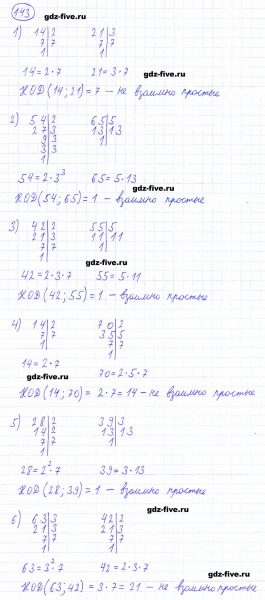 143
gdz-five.ru
1) 14|2 21|3
7|7 7|7
1| 1|
gdz-five.ru
14=2·7 21=3·7
НОД(14;21)=7 - не взаимно простые
gdz-five.ru
2) 54|2 65|5
27|3 13|13
9|3 1|
3|3
1|
54=2·3³ 65=5·13
gdz-five.ru
НОД(54;65)=1 - взаимно простые
3) 42|2 55|5
21|3 11|11
7|7 1|
1|
gdz-five.ru
42=2·3·7 55=5·11
НОД(42;55)=1 - взаимно простые
4) 14|2 70|2
7|7 35|5
1| 7|7
1|
14=2·7
gdz-five.ru 70=2·5·7
НОД(14;70)=2·7=14 - не взаимно простые
gdz-five.ru
5) 28|2 39|3
14|2 13|13
7|7 1|
1|
28=2²·7 39=3·13
gdz-five.ru
НОД(28;39)=1 - взаимно простые
gdz-five.ru
6) 63|3 42|2
21|3 21|3
7|7 7|7
1| 1|
63=3²·7 42=2·3·7
gdz-five.ru
НОД(63;42)=3·7=21 - не взаимно простые